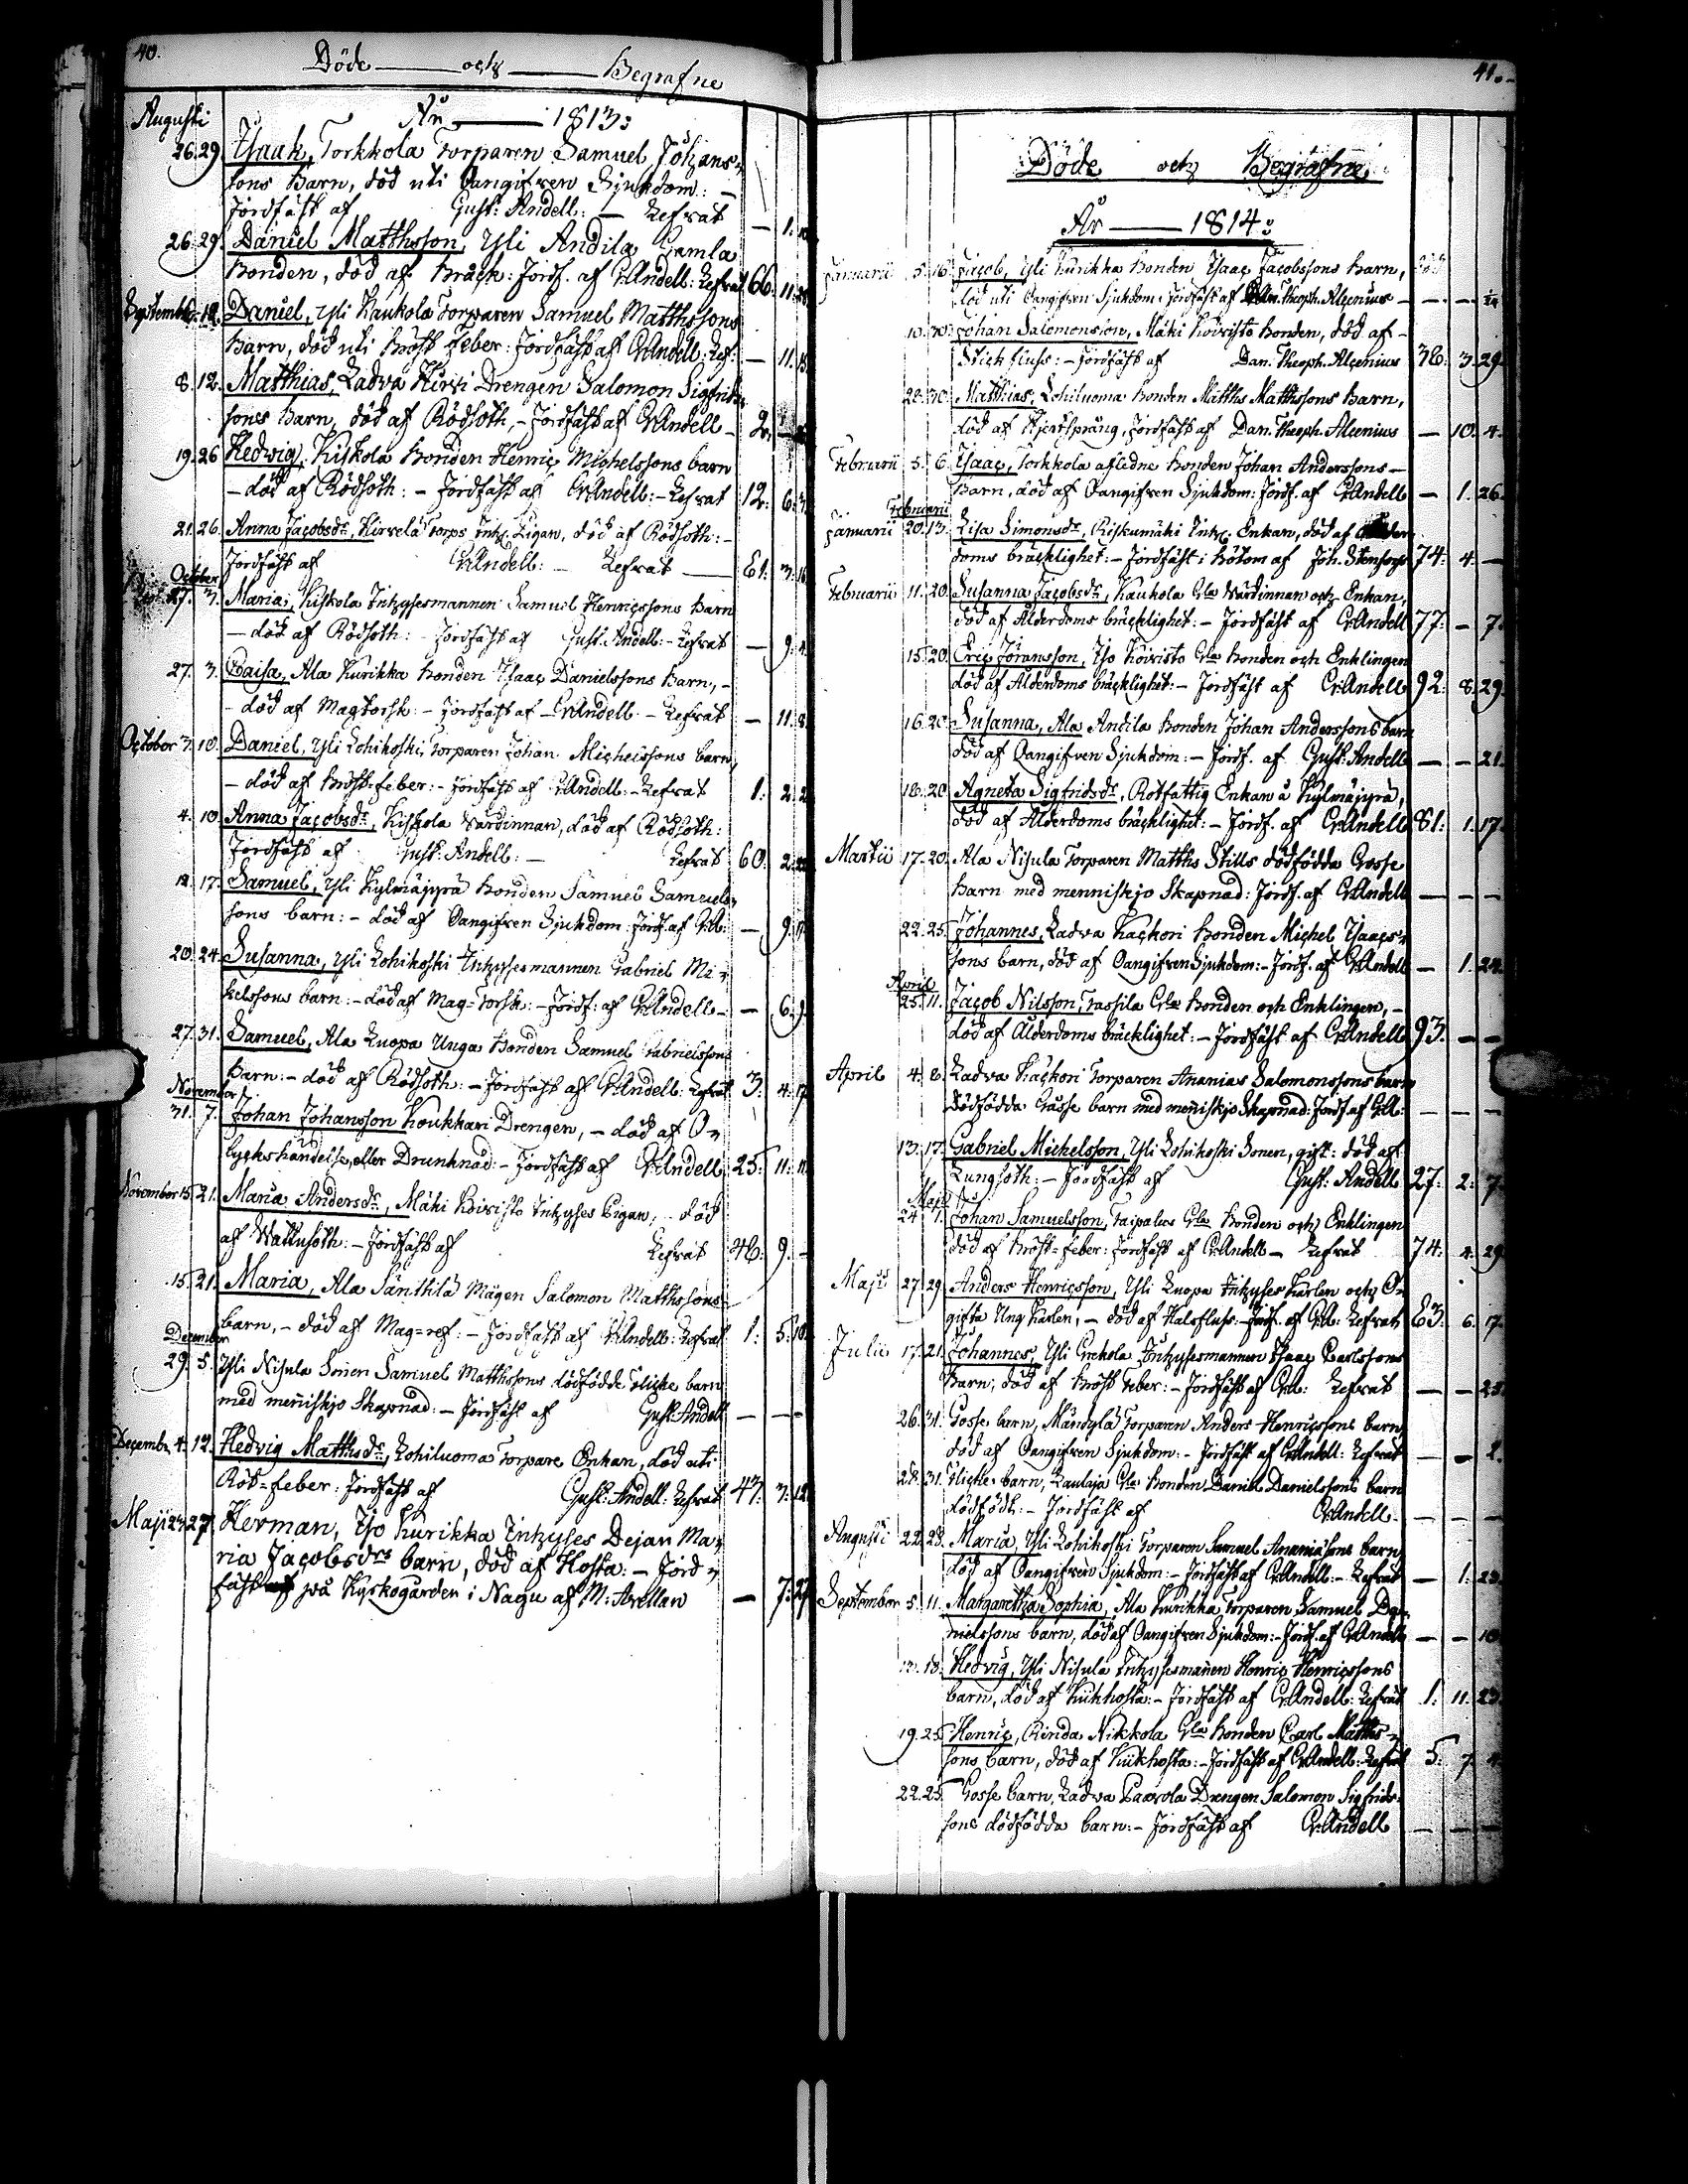 40.
Döde — och — Begrafne
Augusti År — 1813:
26. 29. Isaak, Torkkola Torparen Samuel Johans-
sons Barn, död uti Oangifven Sjukdom: —
Jordfäst af Gust: Andell: — Refvat — 1.
26. 29. Daniel Matthsson, Yli Andila Gamla
Bonden, död af Bråck: Jordf. af G:Andell: Refvat 66. 11.
September 12. Daniel, Yli Kaukola Torparen Samuel Matthssons
Barn, död uti Bröst feber: Jordfäst af G:Andell: Ref: — 11.
8. 12. Matthias, Ladva Kirsi Drengen Salomon Sigfrids
sons Barn, död af Rödsoth, – Jordfäst af G:Andell – 2.
19. 26 Hedwig, Kiskola Bonden Henric Michelssons barn
– död af Rödsoth: – Jordfäst af G:Andell: – Refvat 12. 6.
21. 26. Anna Jacobsdr, Kirvelä Torps Pigan, död af Rödsoth: –
Jordfäst af G:Andell: — Refvat — 61. 3.
October
27. 3. Maria, Kiskola Inhysesmannen Samuel Henricssons Barn
— död af Rödsoth: – Jordfäst af Gust: Andell: – Refvat — 9.
27. 3. Caisa, Ala Kurikka Bonden Isaac Danielssons Barn, –
– död af Magtorsk: – Jordfäst af – G:Andell – Refvat — 11. 8
October 3. 10. Daniel, Yli Lohikoski Torparen Johan Michelssons barn,
– död af Bröst-feber: – Jordfäst af G:Andell: – Refvat 1. 2.
4. 10 Anna Jacobsdr, Kiskola Värdinnan, död af Rödsoth:
Jordfäst af Gust: Andell: — Refvat 60. 2.
12. 17. Samuel, Yli Kylmäjyrä Bonden Samuel Samuels-
sons barn: – död af Oangifven Sjukdom: Jordf. af G:A: — 9.
20. 24. Susanna, Yli Lohikoski Inhysesmannen Gabriel Mi-
kelssons barn: – död af Mag-Torsk: – Jordf: af G:Andell – — 6. 9
27. 31. Samuel, Ala Luopa Unga Bonden Samuel Gabrielssons
Barn: – död af Rödsoth: – Jordfäst af G:Andell: Refvat 3. 4. 17
November
31. 7. Johan Johansson Koukkari Drengen, – död af O-
lyckshändelse, eller Drunknad: – Jordfäst af G:Andell 25. 11. 11.
November 15. 21. Maria Andersdr, Mäki Koivisto Inhyses Pigan, – död
af Wattusoth: – Jordfäst af Refvat 46. 9. –
15. 21. Maria, Ala Säntti Mågen Salomon Matthssons
barn, – död af Mag-ref: – Jordfäst af G:Andell: Refvat 1. 5. 18
December
29. 5. Yli Nisula Sonen Samuel Matthssons dödfödde Flicke barn
med menniskjo Skapnad: – Jordfäst af Gust: Andell — — —
December 4. 12. Hedvig Matthsdr, Lohiluoma Torpare Enkan, död uti
Röt-feber: Jordfäst af Gust: Andell: Refvat 47. 3. 12
Maji 23 27 Herman, Iso Kurikka Inhyses Dejan Ma-
ria Jacobsdrs barn, död af Hosta: – Jord-
fäst på Kyrkogården i Nagu af M: Avellan — 7. 27
41.
Döde och Begrafne
År — 1814:
Januarii 5. 16. Jacob, Yli Kurikka Bonden Isaac Jacobssons Barn,
död uti Oangifven Sjukdom: Jordfäst af Dan. Theoph. Alcenius — — —
10. 30. Johan Salomonsson, Mäki Koivisto Bonden, död af –
Stick fluss: – Jordfäst af Dan. Theoph. Alcenius 36. 3. 29.
22. 30. Matthias, Lohiluoma Bonden Matths Matthssons Barn,
död af Hjertsprång, Jordfäst af Dan. Theoph. Alcenius — 10. 4.
Februarii 5. 6. Isaac, Torkkola afledne Bonden Johan Anderssons —
Barn, död af Oangifven Sjukdom: Jordf. af G:Andell — 1. 26.
Februarii
Januarii 20. 13. Lisa Simonsdr, Riskumäki Enkan, död af Ålder
doms bräcklighet: – Jordfäst i Bötom af Joh. 74. 4. —
Februarii 11. 20. Susanna Jacobsdr, Kaukola Gla Värdinnan och Enkan,
död af Ålderdoms bräcklighet: – Jordfäst af G:Andell 77. — 7.
15. 20. Eric Jöransson, Iso Koivisto Gla Bonden och Enklingen
död af Ålderdoms bräcklighet: – Jordfäst af G:Andell 92. 8. 29.
16. 20. Susanna, Ala Andila Bonden Johan Anderssons barn
död af Oangifven Sjukdom: – Jordf. af Gust: Andell — — 21.
18. 20 Agneta Sigfridsdr, Rotfattig Enkan å Kylmäjyrä,
död af Ålderdoms bräcklighet: – Jordf. af G:Andell 81. 1. 17.
Martii 17. 20. Ala Nisula Torparen Matths Stills dödfödda Gosse
Barn med menniskjo Skapnad: Jordf. af G:Andell — — —
22. 25. Johannes, Ladva Kackori Bonden Michel Isaacs-
sons barn, död af Oangifven Sjukdom: – Jordf. af G:Andell — 1. 24.
April
25. 11. Jacob Nilsson, Tassila Gla Bonden och Enklingen, –
död af Ålderdoms bräcklighet: – Jordfäst af G:Andell 93. — —
April 4. 8. Ladva Kackori Torparen Ananias Salomonssons barn
dödfödda Gosse barn med menniskjo Skapnad: Jordf af G:A: — — —
13. 17. Gabriel Michelsson, Yli Lohikoski Sonen, gift: död af
Lungsoth: – Jordfäst af Gust: Andell 27. 2. 7.
Maji
24 1. Johan Samuelsson, Taipalus Gla Bonden och Enklingen
död af Bröst-feber: Jordfäst af G:Andell – Refvat 74. 4. 29
Maji 27 29. Anders Henricsson, Yli Luopa Inhyses Karlen och O-
gifta Ung Karlen, – död af Halsfluss: – Jordf. af G:A: Refvat 63. 6. 17.
Julii 17. 21. Johannes, Yli Grekola Inhysesmannen Isaac Carlssons
Barn, död af Bröst Feber: – Jordfäst af G:A: Refvat — — 25.
26. 31. Gosse barn, Mändylä Torparen Anders Henricssons barn,
död af Oangifven Sjukdom: – Jordfäst af G:Andell: Refvat — — 2.
28. 31. Flicke barn, Laulaja Gla Bonden Daniel Danielssons barn
dödfödt: – Jordfäst af G:Andell. — — —
Augusti 22. 28. Maria, Yli Lohikoski Torparen Samuel Ananiæsons barn
död af Oangifven Sjukdom: – Jordfäst af G:Andell: – Refvat — 1. 23.
September 5. 11. Margaretha Sophia, Ala Kurikka Torparen Samuel Da-
nielssons barn, död af Oangifven Sjukdom: – Jordf. af G:Andell — — 10
13. 18. Hedvig, Yli Nisula Inhysesmannen Henric Henricssons
barn, död af Kikhosta: – Jordfäst af G:Andell: Refvat 1. 11. 23.
19. 25. Henric, Rinda Nikkola Gla Bonden Carl Matths-
sons barn, död af Kikhosta: – Jordfäst af G:Andell: Refvat 5. 7. 4
22. 25. Gosse barn, Ladva Paavola Drengen Salomon Sigfrids-
sons dödfödda barn: – Jordfäst af G:Andell — — —